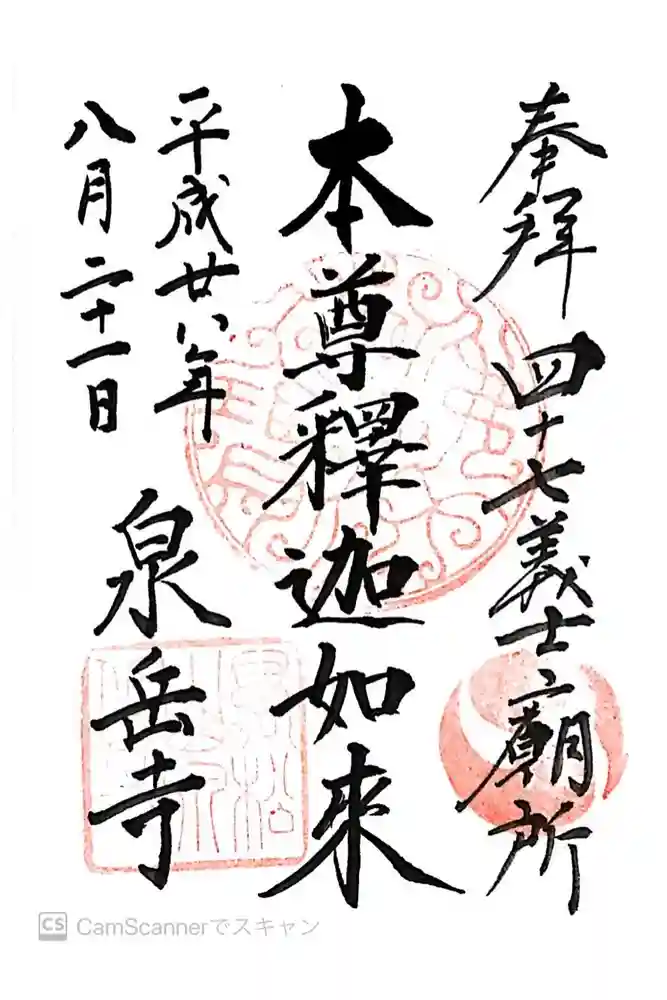 奉拜 四十七義士廟所
本尊釋迦如來
平成廿八年
八月二十一日
泉岳寺
CS CamScannerでスキャン